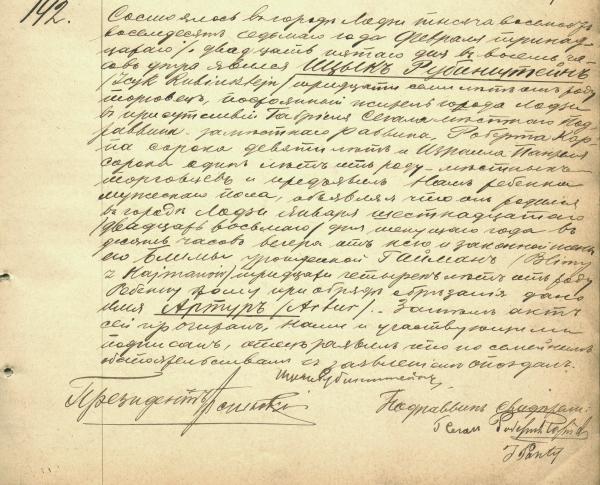 192.
Состоялось въ городѣ Лодзи тысяча восемьсотъ
восемьдесятъ седьмаго года Февраля тринад-
цатаго / двадцать пятаго дня въ восемь ча-
совъ утра явился Ицыкъ Рубинштейнъ
/Icyk Rubinsztejn/ тридцати семи лѣтъ отъ роду
торговецъ, постоянный житель города Лодзи
въ присутствіи Габріеля Сегала мѣстнаго Под-
раввина заместнаго раввина, Роберта
сорока девяти лѣтъ и Израиля
сорока одинъ лѣтъ отъ роду мѣстныхъ
торговцевъ и предъявилъ Намъ ребенка
мужескаго пола, объявляя что онъ родился
въ городѣ Лодзи Января шестнадцатаго
/двадцать восьмаго/ дня текущаго года въ
десять часовъ вечера отъ него и законной жены
его Блимы урожденной Гайманъ /Blimy
z Hajmanów/ тридцати четырехъ лѣтъ отъ роду
Ребенку этому при обрядѣ обрѣзанія дано
имя Артуръ /Artur/. Затѣмъ актъ
сей прочитанъ, Нами и участвующими
подписанъ, отецъ заявилъ что по семейнымъ
обстоятельствамъ съ заявленіемъ опоздалъ.
Рубинштейнъ
Президентъ
Подраввинъ Свидѣтели:
Г Сегалъ
J